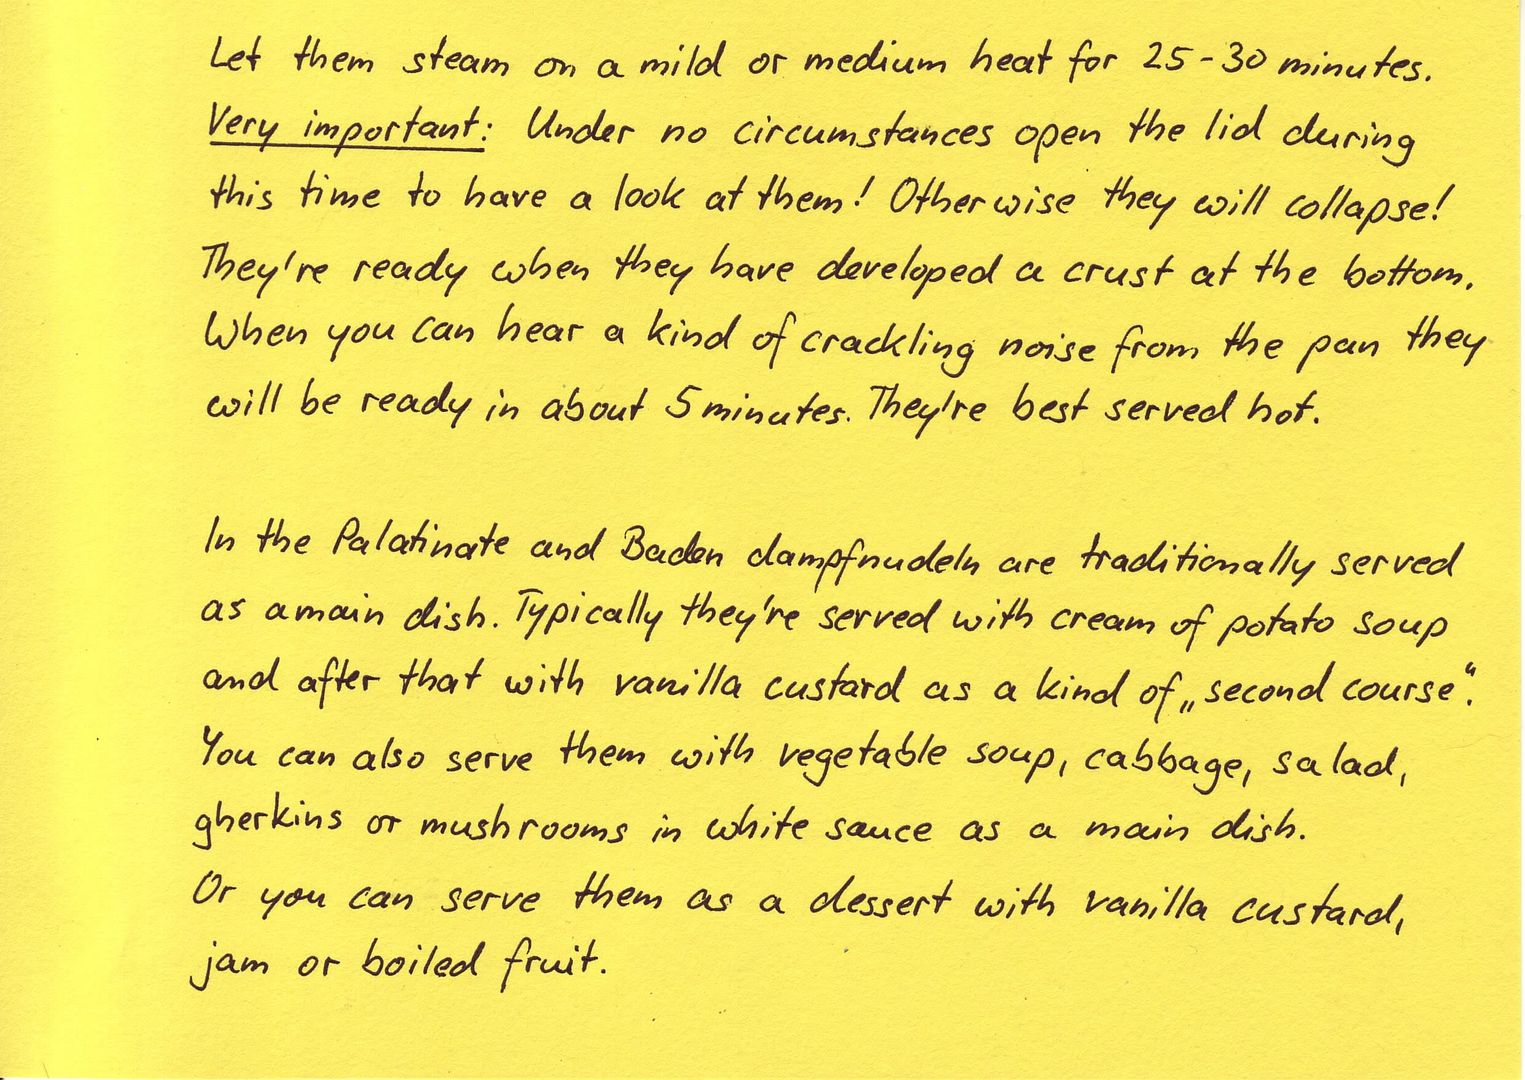 Let them steam on a mild or medium heat for 25-30 minutes.
Very important: Under no circumstances open the lid during
this time to have a look at them! Otherwise they will collapse!
They're ready when they have developed a crust at the bottom.
When you can hear a kind of crackling noise from the pan they
will be ready in about 5 minutes. They're best served hot.
In the Palatinate and Baden dampfnudeln are traditionally served
as a main dish. Typically they're served with cream of potato soup
and after that with vanilla custard as a kind of „second course“.
You can also serve them with vegetable soup, cabbage, salad,
gherkins or mushrooms in white sauce as a main dish.
Or you can serve them as a dessert with vanilla custard,
jam or boiled fruit.